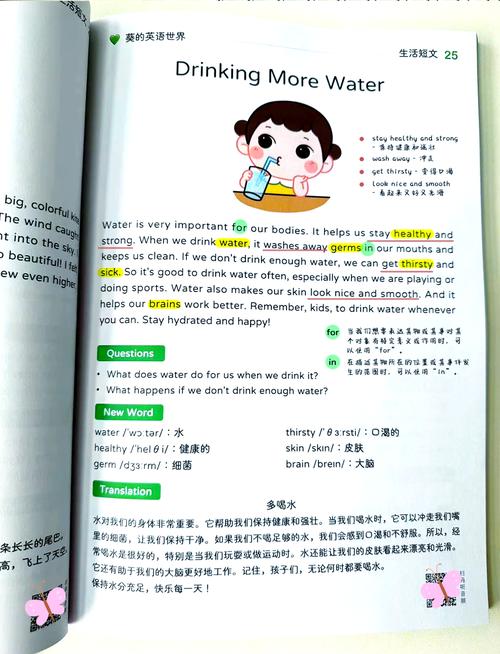 葵的英语世界
生活短文 25
Drinking More Water
stay healthy and strong
- 保持健康和强壮
wash away - 冲走
get thirsty - 变得口渴
look nice and smooth
- 看起来又好又光滑
Water is very important for our bodies. It helps us stay healthy and
strong. When we drink water, it washes away germs in our mouths and
keeps us clean. If we don't drink enough water, we can get thirsty and
sick. So it's good to drink water often, especially when we are playing or
doing sports. Water also makes our skin look nice and smooth. And it
helps our brains work better. Remember, kids, to drink water whenever
you can. Stay hydrated and happy!
for 当我们想要表达某物或某事对某
个对象有特定意义或作用时，可
以使用"for"。
in 在描述某物所在的位置或某事件发
生的范围时，可以使用"in"。
Questions
• What does water do for us when we drink it?
• What happens if we don't drink enough water?
New Word
water /ˈwɔːtər/：水
thirsty /ˈθɜːrsti/：口渴的
healthy /ˈhelθi/：健康的
skin /skɪn/：皮肤
germ /dʒɜːrm/：细菌
brain /breɪn/：大脑
Translation
多喝水
水对我们的身体非常重要。它帮助我们保持健康和强壮。当我们喝水时，它可以冲走我们嘴
里的细菌，让我们保持干净。如果我们不喝足够的水，我们会感到口渴和不舒服。所以，经
常喝水是很好的，特别是当我们玩耍或做运动时。水还能让我们的皮肤看起来漂亮和光滑。
它还有助于我们的大脑更好地工作。记住，孩子们，无论何时都要喝水。
保持水分充足，快乐每一天！
扫码听音频
big, colorful
The wind caught
into the sky.
beautiful! I
ew even higher.
条长长的尾巴，
高，飞上了天空。